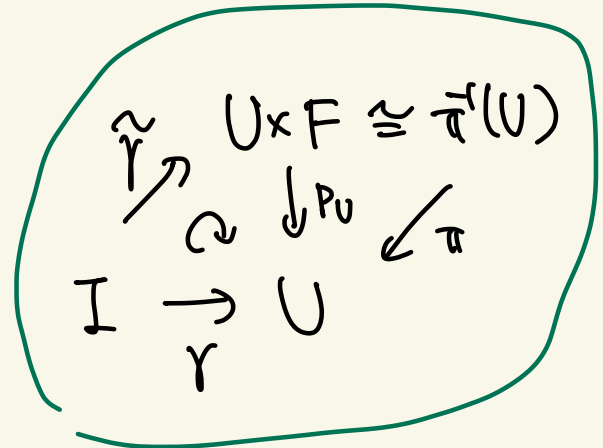 γ̃ U×F ≅ π⁻¹(U)
↗ ↻ ↓ P_U ↙ π
I → U
γ